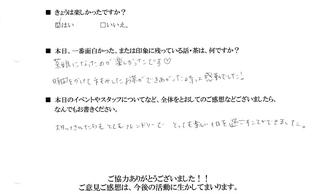 ■ きょうは楽しかったですか？
はい　□いいえ。
■ 本日、一番面白かった、または印象に残っている話・茶は、何ですか？
茶娘になったのが楽しかったです♡
時間をかけて手もみしたお茶ができあがったときは感動でした！
■ 本日のイベントやスタッフについてなど、全体をとおしてのご感想などございましたら、
なんでもお書きください。
スタッフさんたちも とてもフレンドリーで とっても楽しい1日を過ごすことができました。
ご協力ありがとうございました！！
ご意見ご感想は、今後の活動に生かしてまいります。